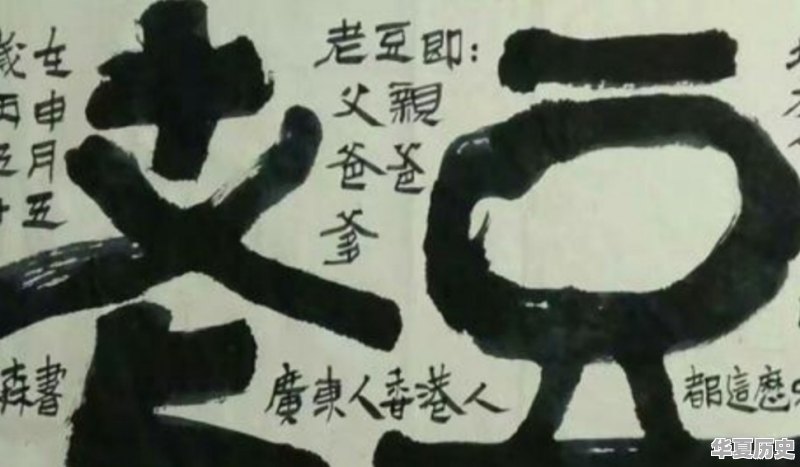 老豆
歲在
丙申
五月
五
森書
老豆即：
父親
爸爸
爹
廣東人香港人
都這麽
华夏历史